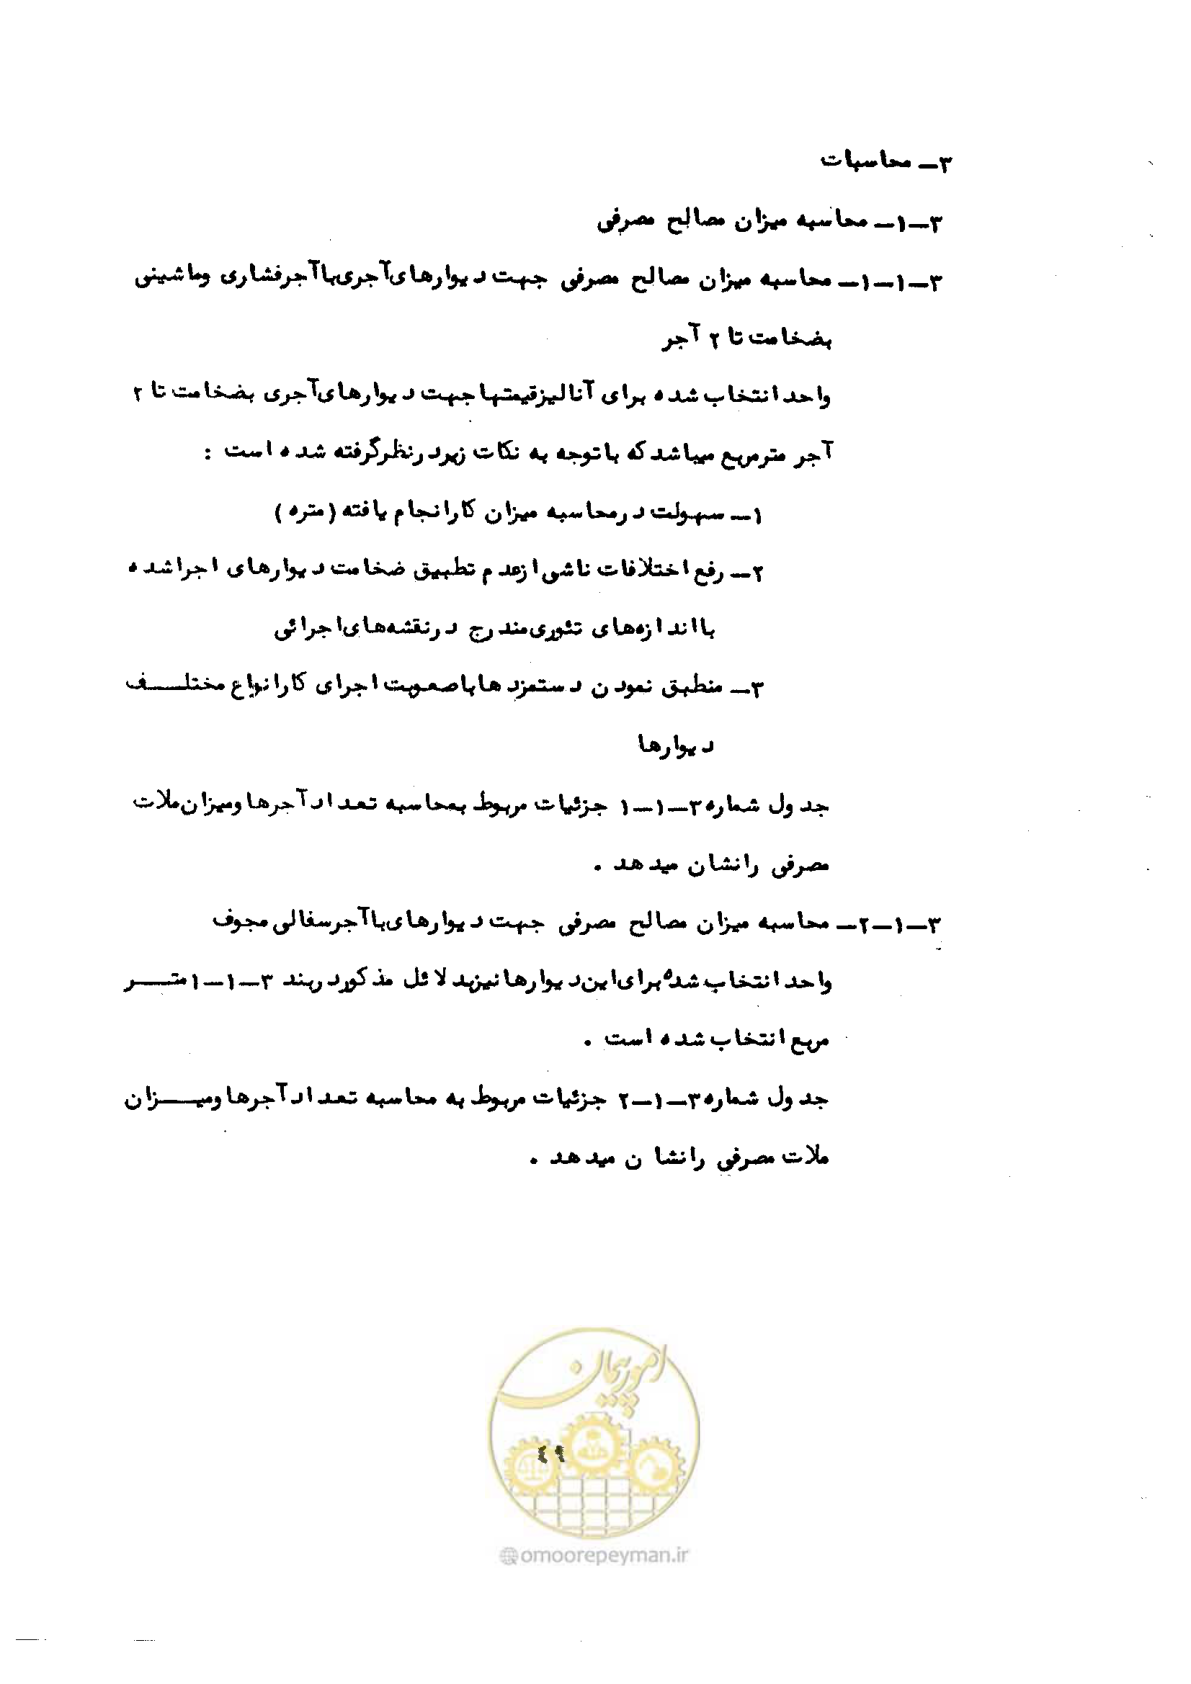 ۳ـ محاسبات
۳ـ۱ـ محاسبه میزان مصالح مصرفی
۳ـ۱ـ۱ـ محاسبه میزان مصالح مصرفی جهت دیوارهای‌آجری‌با‌آجرفشاری وماشینی
بضخامت تا ۲ آجر
واحد انتخاب شده برای آنالیزقیمتها جهت دیوارهای‌آجری بضخامت تا ۲
آجر مترمربع میباشد که با توجه به نکات زیردرنظرگرفته شده است :
۱ـ سهولت درمحاسبه میزان کارانجام یافته ( متره )
۲ـ رفع اختلافات ناشی ازعدم تطبیق ضخامت دیوارهای اجرا شده
با اندازه‌های تئوری‌مندرج درنقشه‌های‌اجرائی
۳ـ منطبق نمودن دستمزدها با صعوبت اجرای کارانواع مختلـــف
دیوارها
جدول شماره ۳ـ۱ـ۱ جزئیات مربوط بمحاسبه تعداد آجرها ومیزان‌ملات
مصرفی رانشان میدهد .
۳ـ۱ـ۲ـ محاسبه میزان مصالح مصرفی جهت دیوارهای‌با‌آجرسفالی مجوف
واحد انتخاب شده برای‌این‌دیوارها نیزبدلائل مذکوردربند ۳ـ۱ـ۱ متـــر
مربع انتخاب شده است .
جدول شماره ۳ـ۱ـ۲ جزئیات مربوط به محاسبه تعداد آجرها ومیـــزان
ملات مصرفی رانشان میدهد .
امور پیمان
۴۹
omoorepeyman.ir